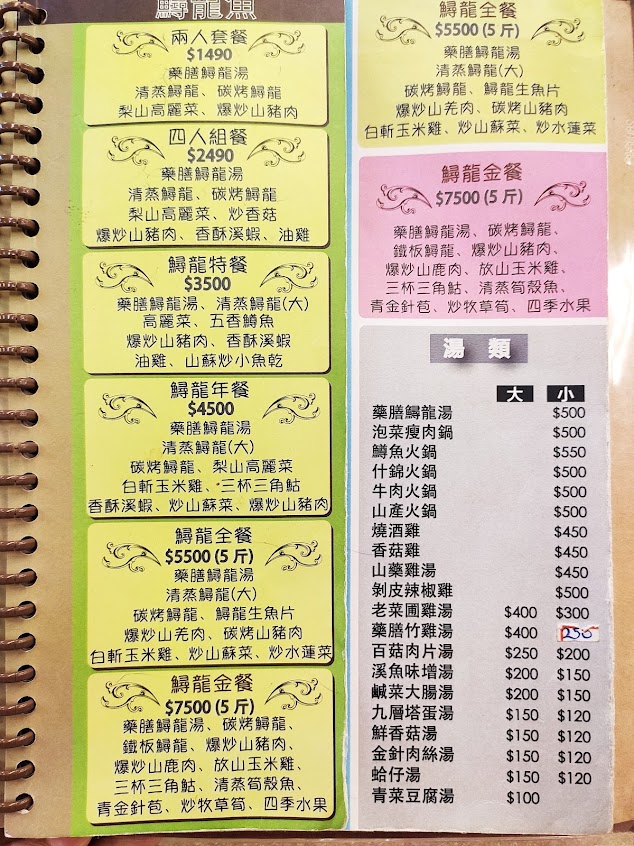 鱘龍魚
兩人套餐
$1490
藥膳鱘龍湯
清蒸鱘龍、碳烤鱘龍
梨山高麗菜、爆炒山豬肉
四人組餐
$2490
藥膳鱘龍湯
清蒸鱘龍、碳烤鱘龍
梨山高麗菜、炒香菇
爆炒山豬肉、香酥溪蝦、油雞
鱘龍特餐
$3500
藥膳鱘龍湯、清蒸鱘龍(大)
高麗菜、五香鱒魚
爆炒山豬肉、香酥溪蝦
油雞、山蘇炒小魚乾
鱘龍年餐
$4500
藥膳鱘龍湯
清蒸鱘龍(大)
碳烤鱘龍、梨山高麗菜
白斬玉米雞、三杯三角鮎
香酥溪蝦、炒山蘇菜、爆炒山豬肉
鱘龍全餐
$5500 (5 斤)
藥膳鱘龍湯
清蒸鱘龍(大)
碳烤鱘龍、鱘龍生魚片
爆炒山羌肉、碳烤山豬肉
白斬玉米雞、炒山蘇菜、炒水蓮菜
鱘龍金餐
$7500 (5 斤)
藥膳鱘龍湯、碳烤鱘龍、
鐵板鱘龍、爆炒山豬肉、
爆炒山鹿肉、放山玉米雞、
三杯三角鮎、清蒸筍殼魚、
青金針苞、炒牧草筍、四季水果
鱘龍全餐
$5500 (5 斤)
藥膳鱘龍湯
清蒸鱘龍(大)
碳烤鱘龍、鱘龍生魚片
爆炒山羌肉、碳烤山豬肉
白斬玉米雞、炒山蘇菜、炒水蓮菜
鱘龍金餐
$7500 (5 斤)
藥膳鱘龍湯、碳烤鱘龍、
鐵板鱘龍、爆炒山豬肉、
爆炒山鹿肉、放山玉米雞、
三杯三角鮎、清蒸筍殼魚、
青金針苞、炒牧草筍、四季水果
湯 類
大 小
藥膳鱘龍湯 $500
泡菜瘦肉鍋 $500
鱒魚火鍋 $550
什錦火鍋 $500
牛肉火鍋 $500
山產火鍋 $500
燒酒雞 $450
香菇雞 $450
山藥雞湯 $450
剝皮辣椒雞 $500
老菜圃雞湯 $400 $300
藥膳竹雞湯 $400 250
百菇肉片湯 $250 $200
溪魚味增湯 $200 $150
鹹菜大腸湯 $200 $150
九層塔蛋湯 $150 $120
鮮香菇湯 $150 $120
金針肉絲湯 $150 $120
蛤仔湯 $150 $120
青菜豆腐湯 $100